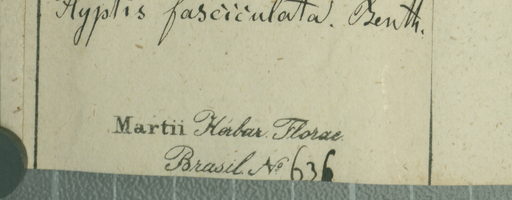 Hyptis fasciculata. Benth.
Martii Herbar. Florae
Brasil. No 636